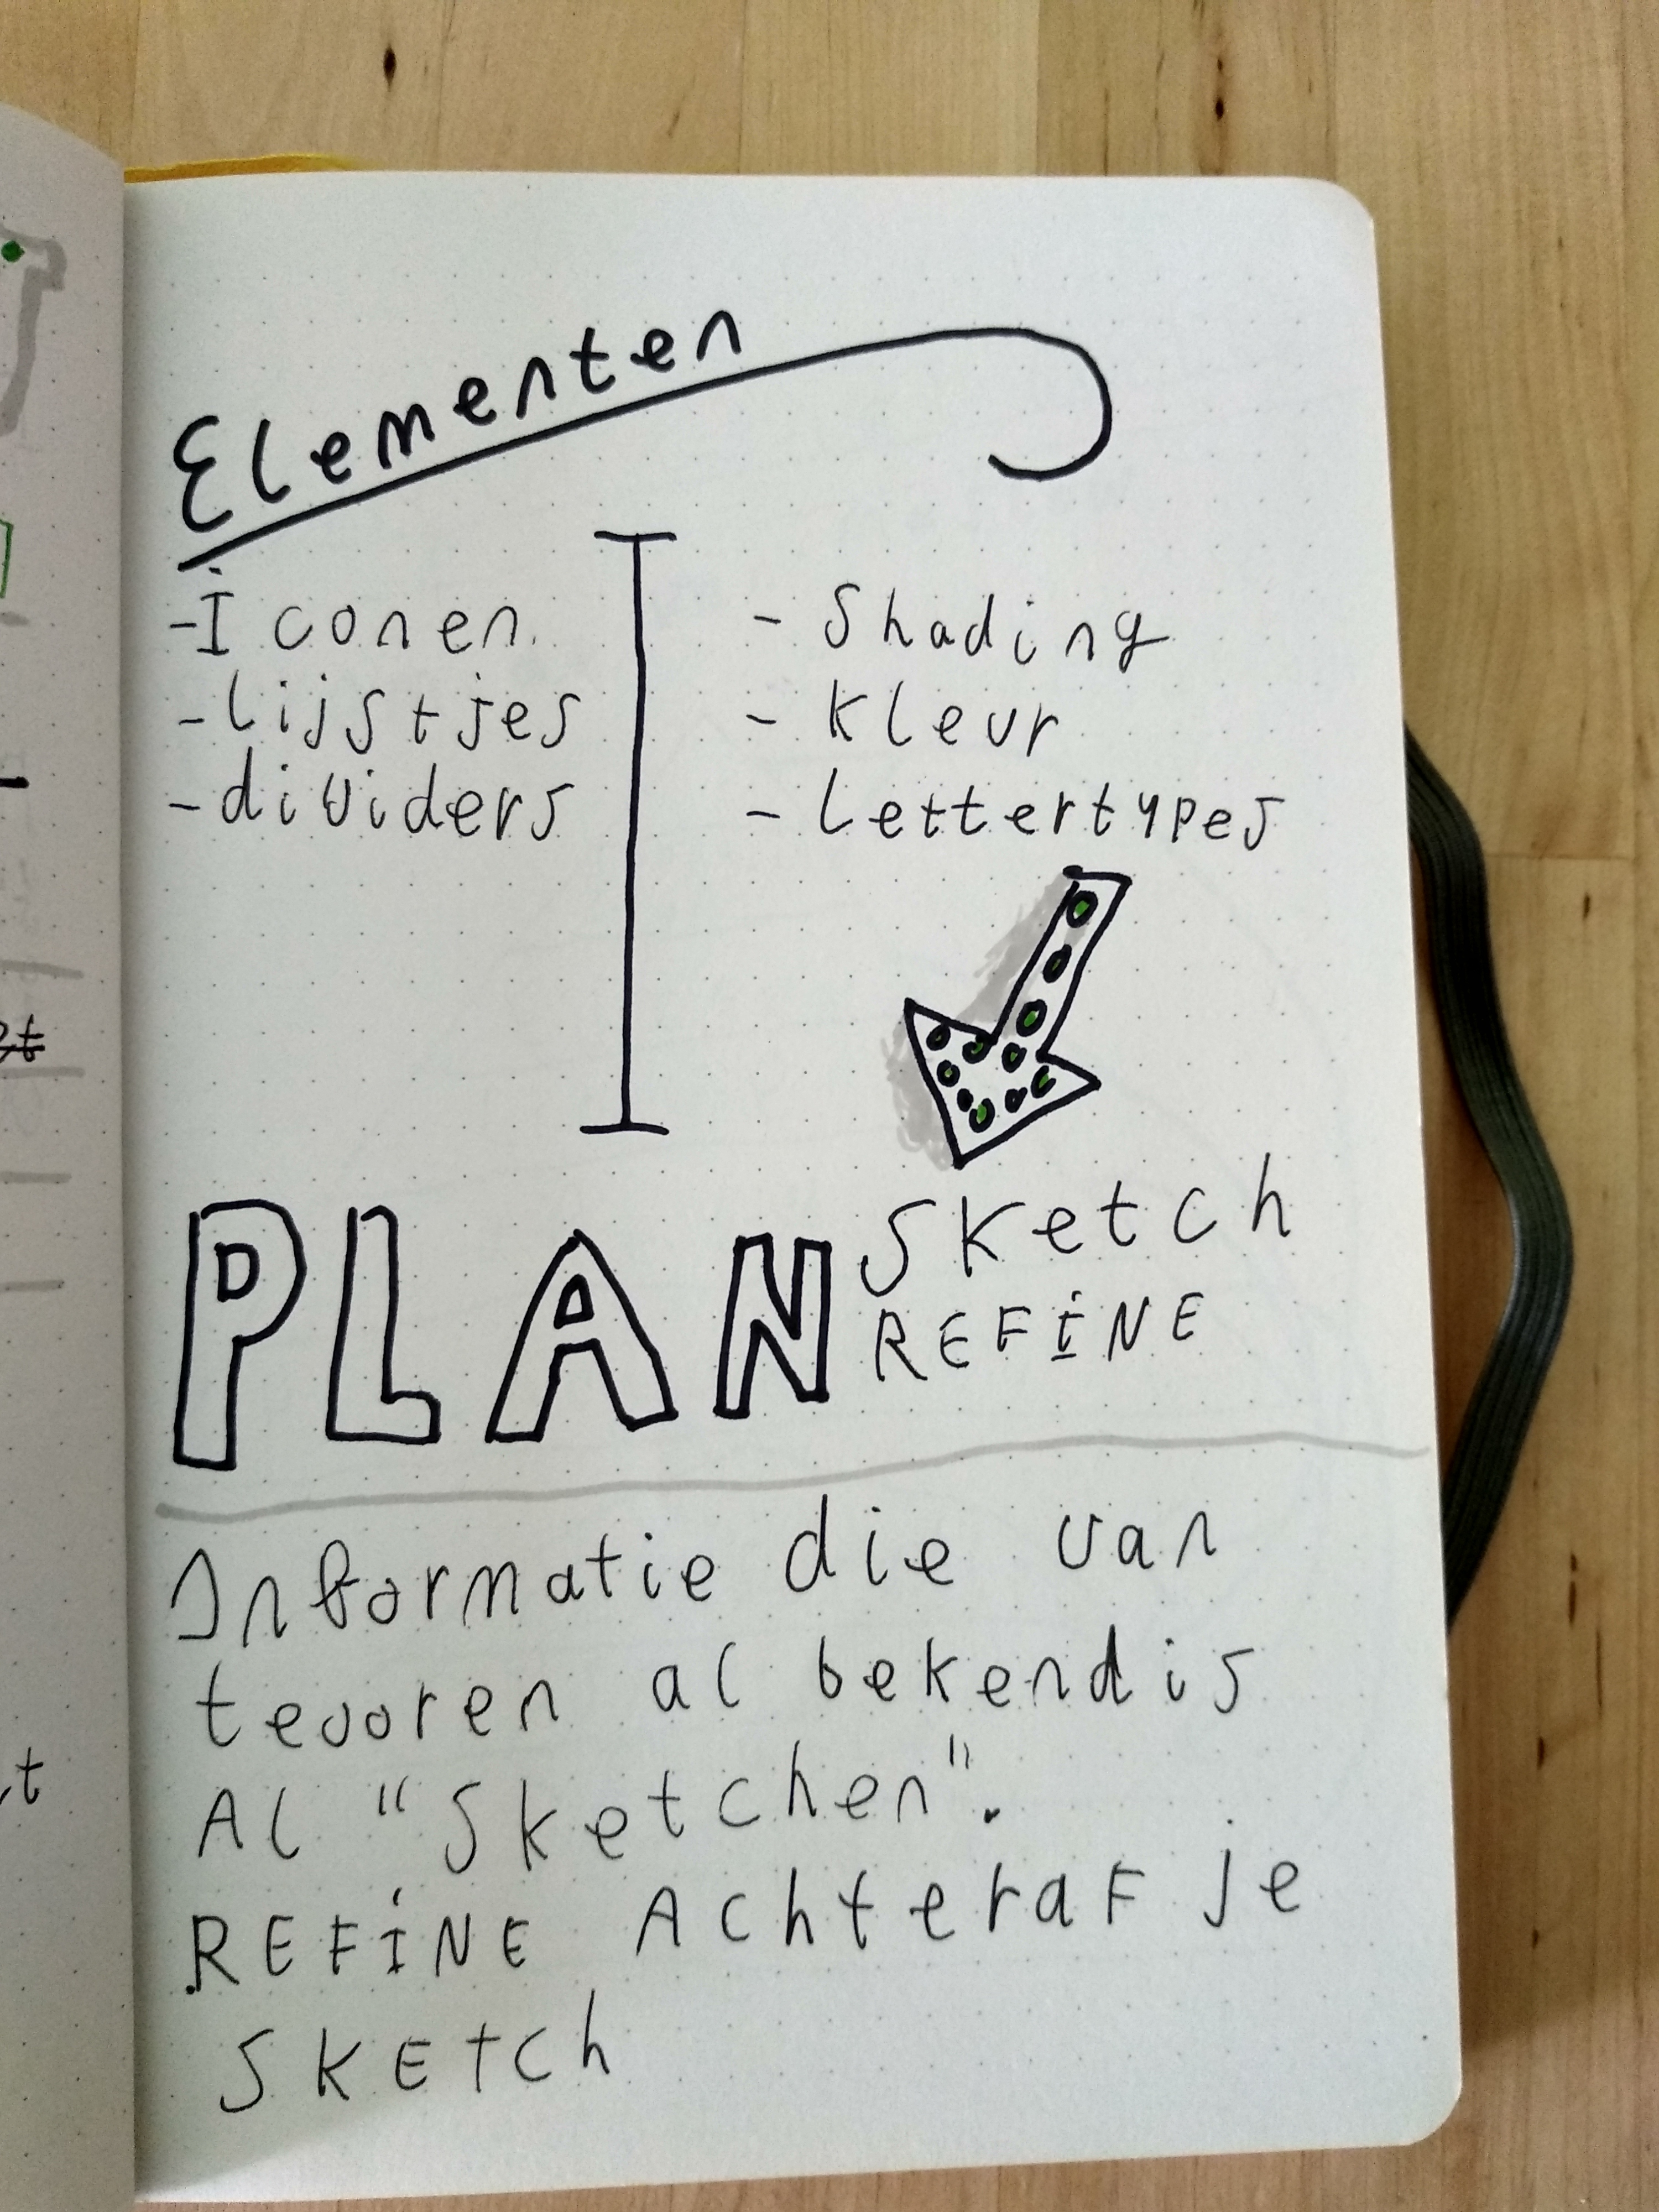 Elementen
- Iconen
- lijstjes
- dividers
- Shading
- Kleur
- Lettertypes
PLAN
Sketch
REFINE
Informatie die van
tevoren al bekend is
Al "Sketchen".
REFINE Achteraf je
SKETCh